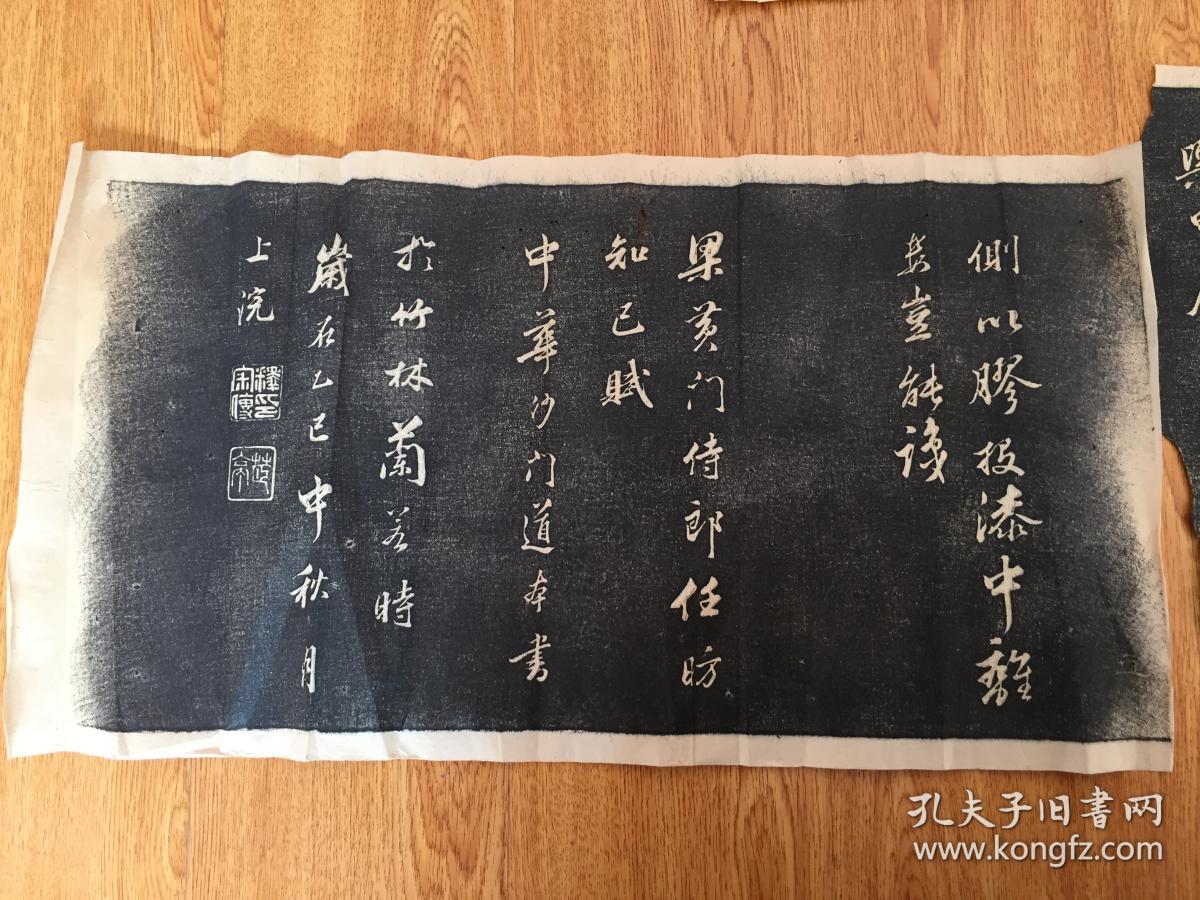 側以膠投漆中離
婁豈能識
梁黄门侍郎任昉
知己賦
中華沙门道本書
於竹林蘭若時
歲在乙巳中秋月
上浣
孔夫子旧書网
www.kongfz.com